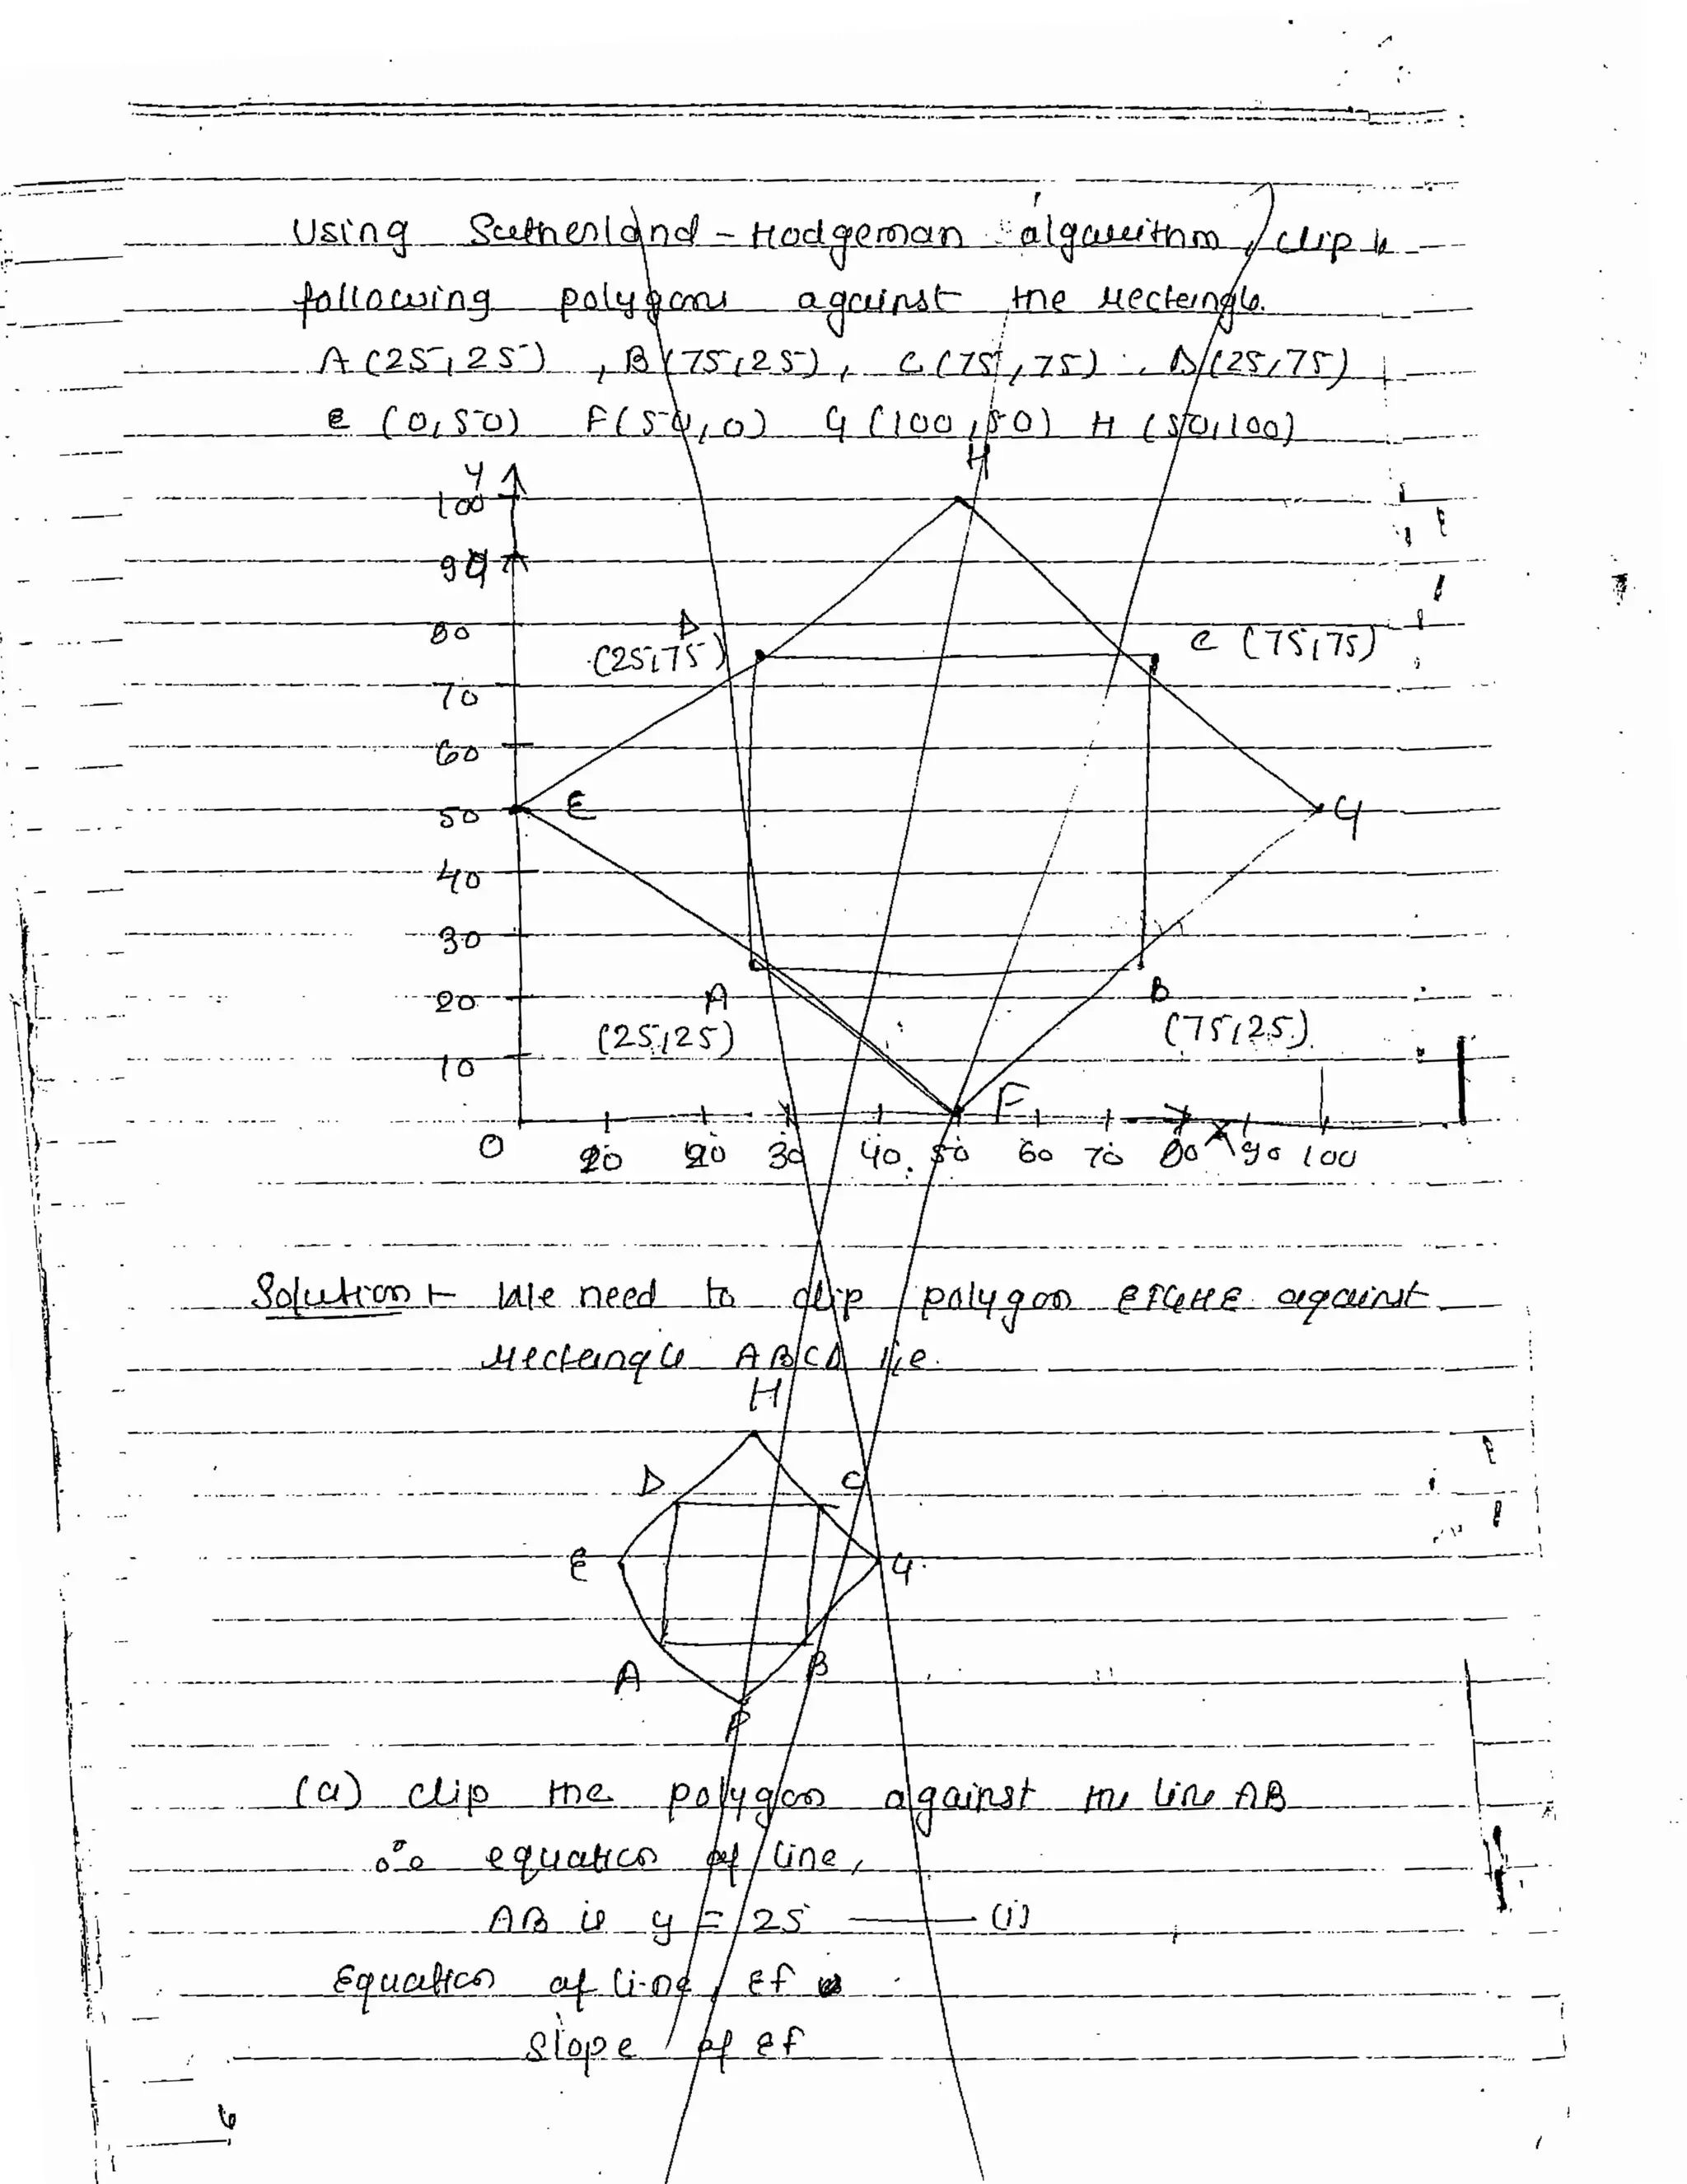 Using Sutherland-Hodgeman algorithm, clip
following polygons against the rectangle.
A (25,25) , B (75,25), C (75,75) . D (25,75)
E (0,50) F (50,0) G (100,50) H (50,100)
H
y
100
90
80
D
(25,75)
C (75,75)
70
60
50
E
G
40
30
20
A
B
(25,25)
(75,25)
10
F
0 10 20 30 40 50 60 70 80 X 90 100
Solution :- We need to clip polygon EFGHE against
rectangle ABCD i.e.
H
D C
E G
A B
F
(a) clip the polygon against the line AB
∴ equation of line,
AB is y = 25 —— (i)
Equation of line, EF
Slope of EF